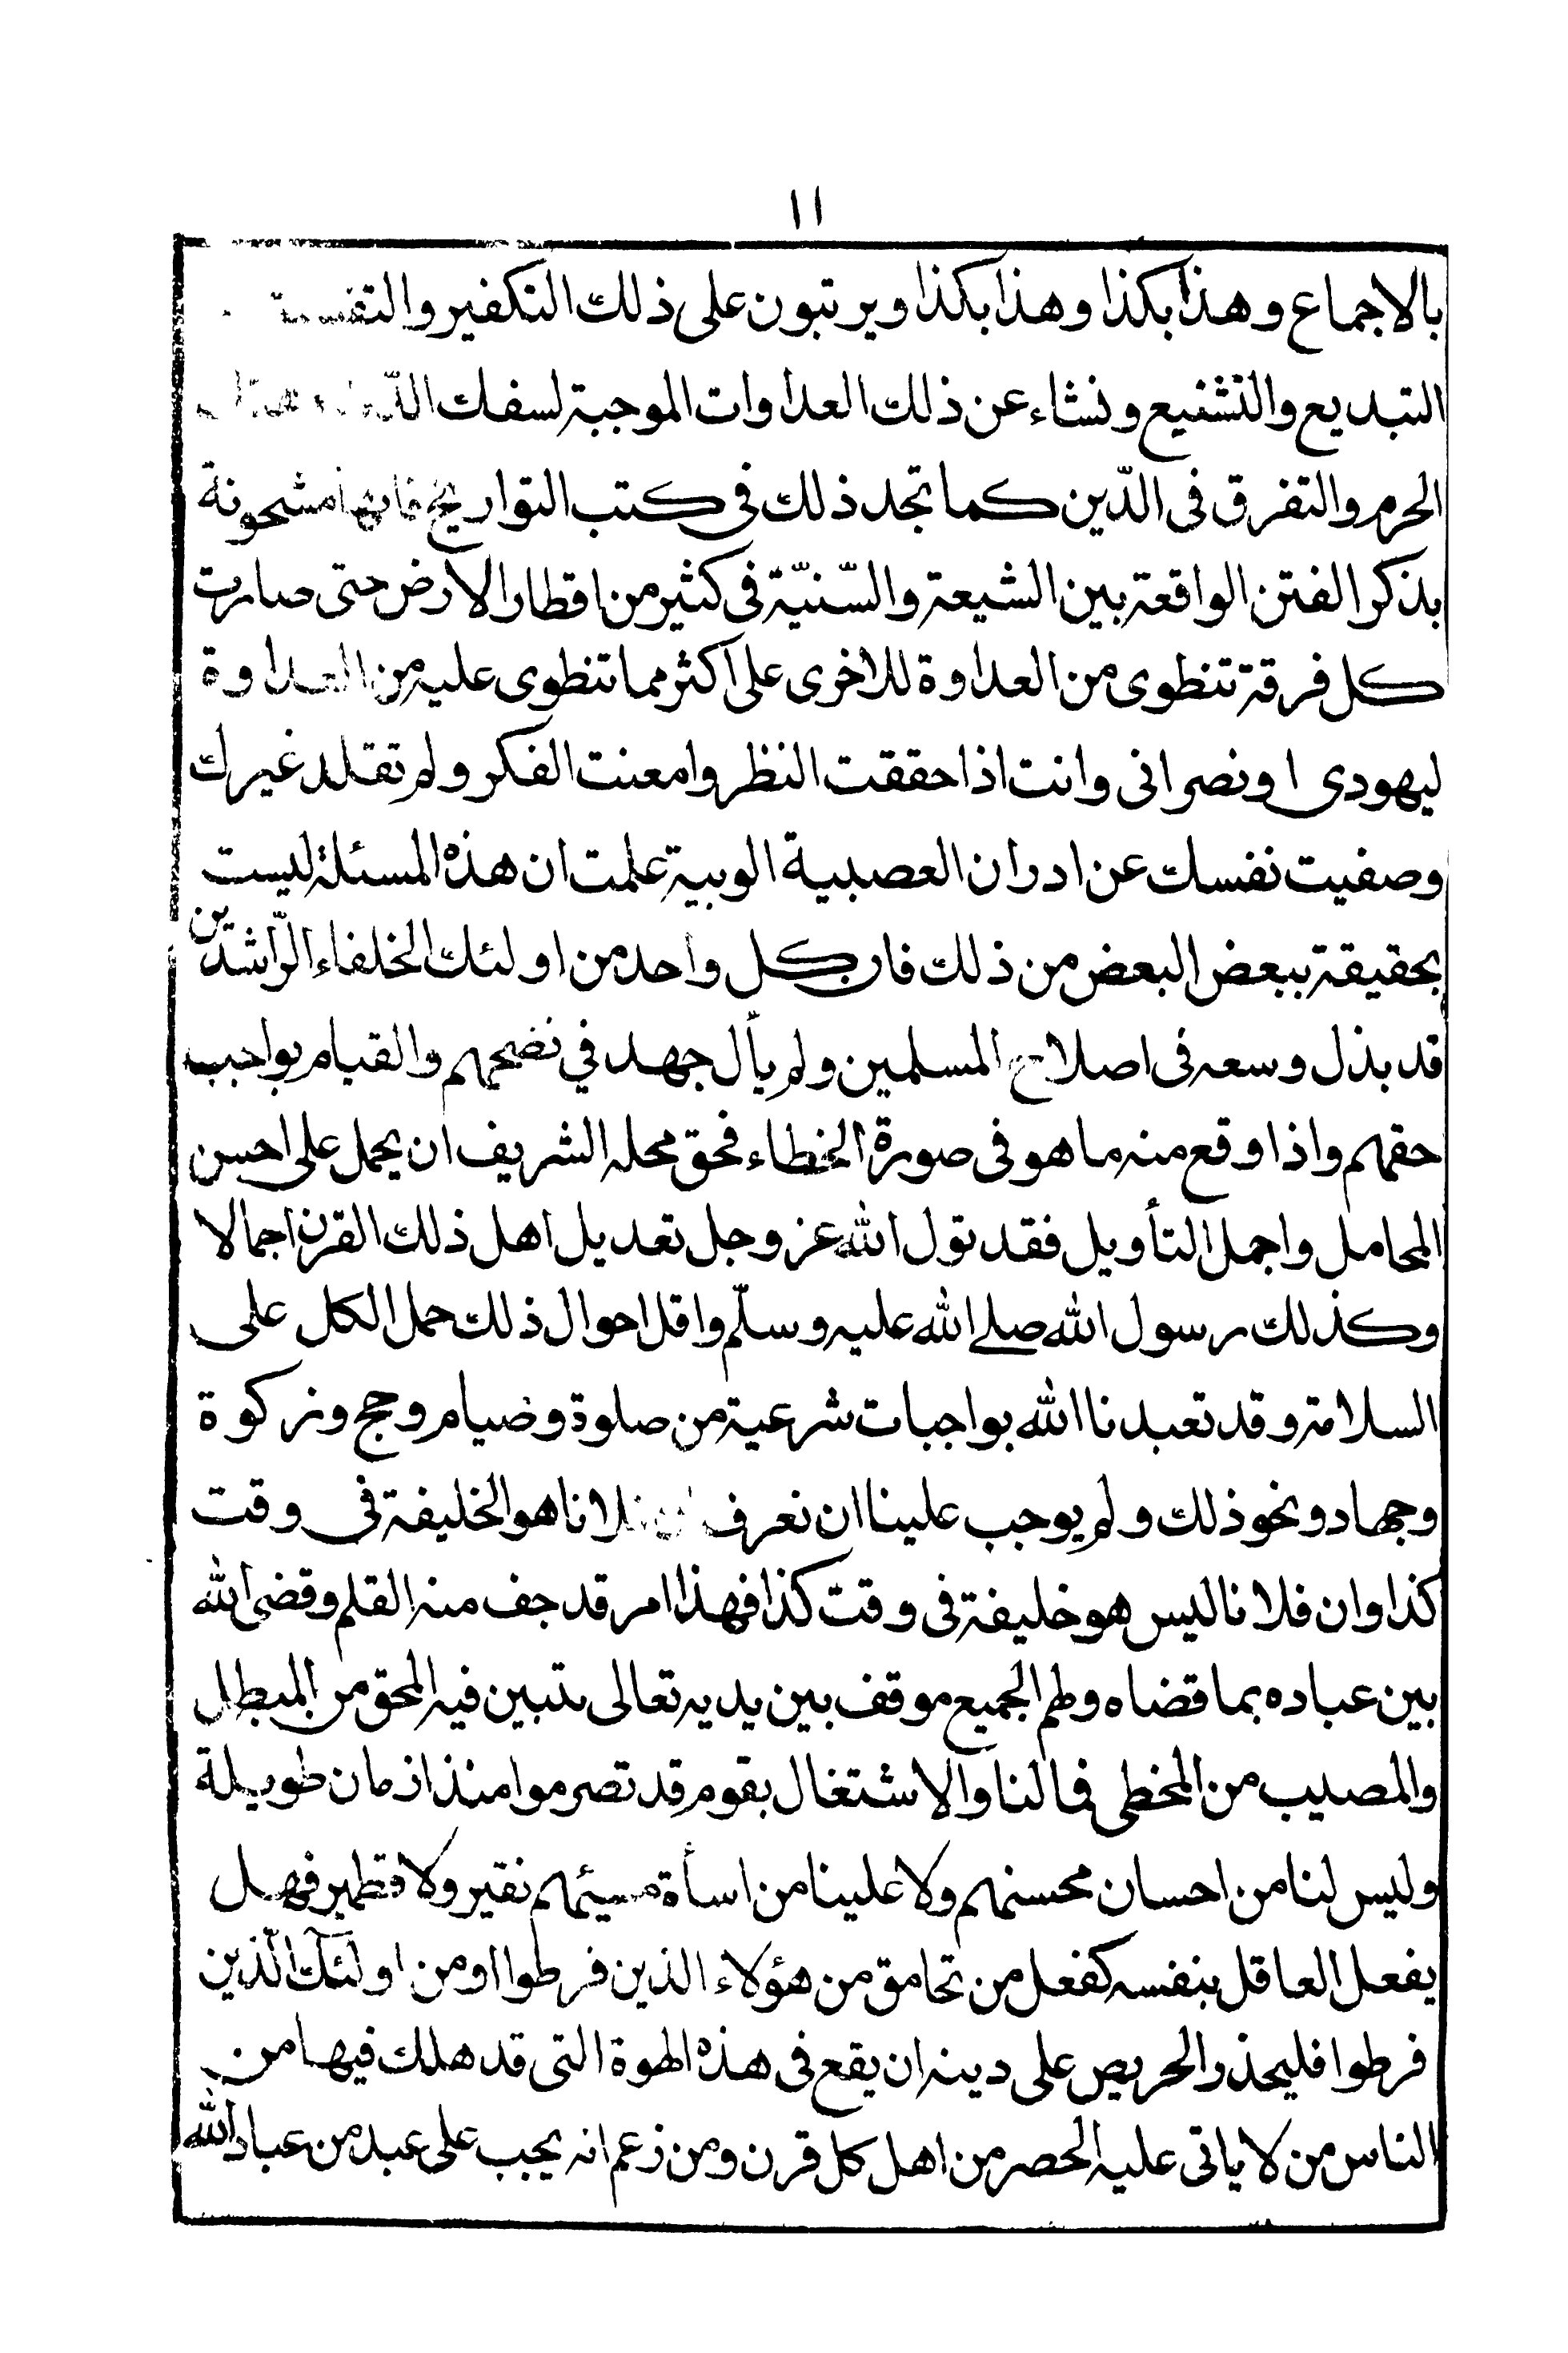 ١١
بالاجماع وهذا بكذا وهذا بكذا ويرتبون على ذلك التكفير
التبديع والتشنيع ونشاء عن ذلك العداوات الموجبة لسفك
الحرم والتفرق فى الدّين كما تجد ذلك فى كتب التواريخ فانها مشحونة
بذكر الفتن الواقعة بين الشيعة والسّنيّة فى كثير من اقطار الارض حتى صارت
كل فرقة تنطوى من العداوة للاخرى على اكثر مما تنطوى عليه من العداوة
ليهودى او نصرانى وانت اذا حققت النظر وامعنت الفكر ولم تقلد غيرك
وصفيت نفسك عن ادران العصبية الوبية علمت ان هذه المسئلة ليست
بحقيقة ببعض البعض من ذلك فان كل واحد من اولئك الخلفاء الرّاشدين
قد بذل وسعه فى اصلاح المسلمين ولم يأل جهد في نصحهم والقيام بواجب
حقهم واذا وقع منه ما هو فى صورة الخطاء فحق محله الشريف ان يحمل على احسن
المحامل واجمل التأويل فقد تول الله عز وجل تعديل اهل ذلك القرن اجمالا
وكذلك رسول الله صلے الله عليه وسلّم واقل احوال ذلك حمل الكل على
السلامة وقد تعبدنا الله بواجبات شرعية من صلوة وضيام وحج وزكوة
وجهاد ونحو ذلك ولم يوجب علينا ان نعرف ان فلانا هو الخليفة فى وقت
كذا وان فلانا ليس هو خليفة فى وقت كذا فهذا امر قد جف منه القلم وقضى الله
بين عباده بما قضاه ولهم الجميع موقف بين يديه تعالى يتبين فيه المحق من المبطل
والمصيب من المخطى فمالنا والاشتغال بقوم قد تصرموا منذ ازمان طويلة
وليس لنا من احسان محسنهم ولا علينا من اسأة مسيئهم نقير ولا قطمير فهل
يفعل العاقل بنفسه كفعل من تحامق من هؤلاء الذين فرطوا او من اولئك الّذين
فرطوا فليحذر الحريص على دينه ان يقع فى هذه الهوة التى قد هلك فيها من
الناس من لا ياتى عليه الحصر من اهل كل قرن ومن زعم انه يجب على عبد من عباد الله